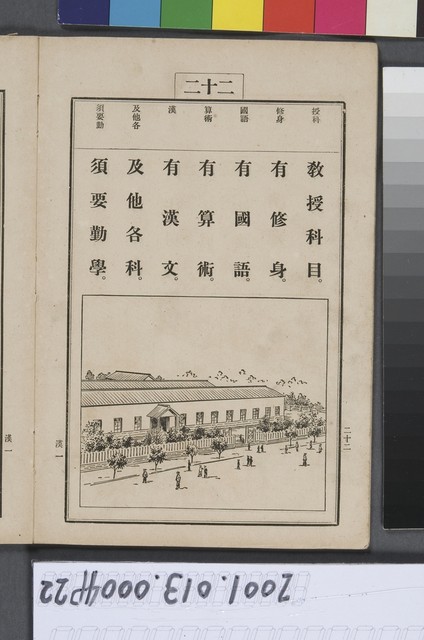 二十二
授科
修身
國語
算術
漢
及他各
須要勤
教授科目。
有修身。
有國語。
有算術。
有漢文。
及他各科。
須要勤學。
漢一
二十二
漢一
2001.013.0004P22